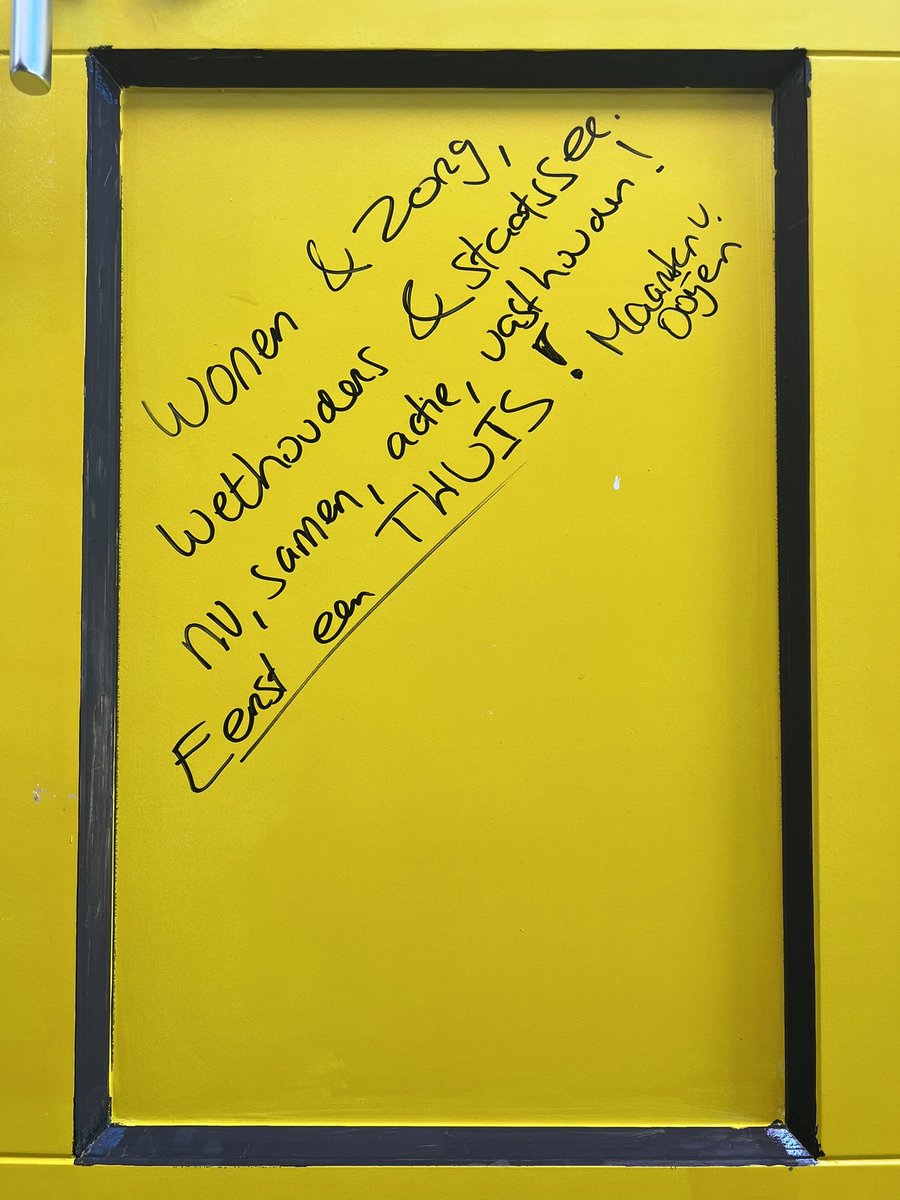 Wonen & zorg,
wethouders & staatssec.
nu, samen, actie, vasthouden!
Eerst een THUIS!
Maarten v.
Ooijen